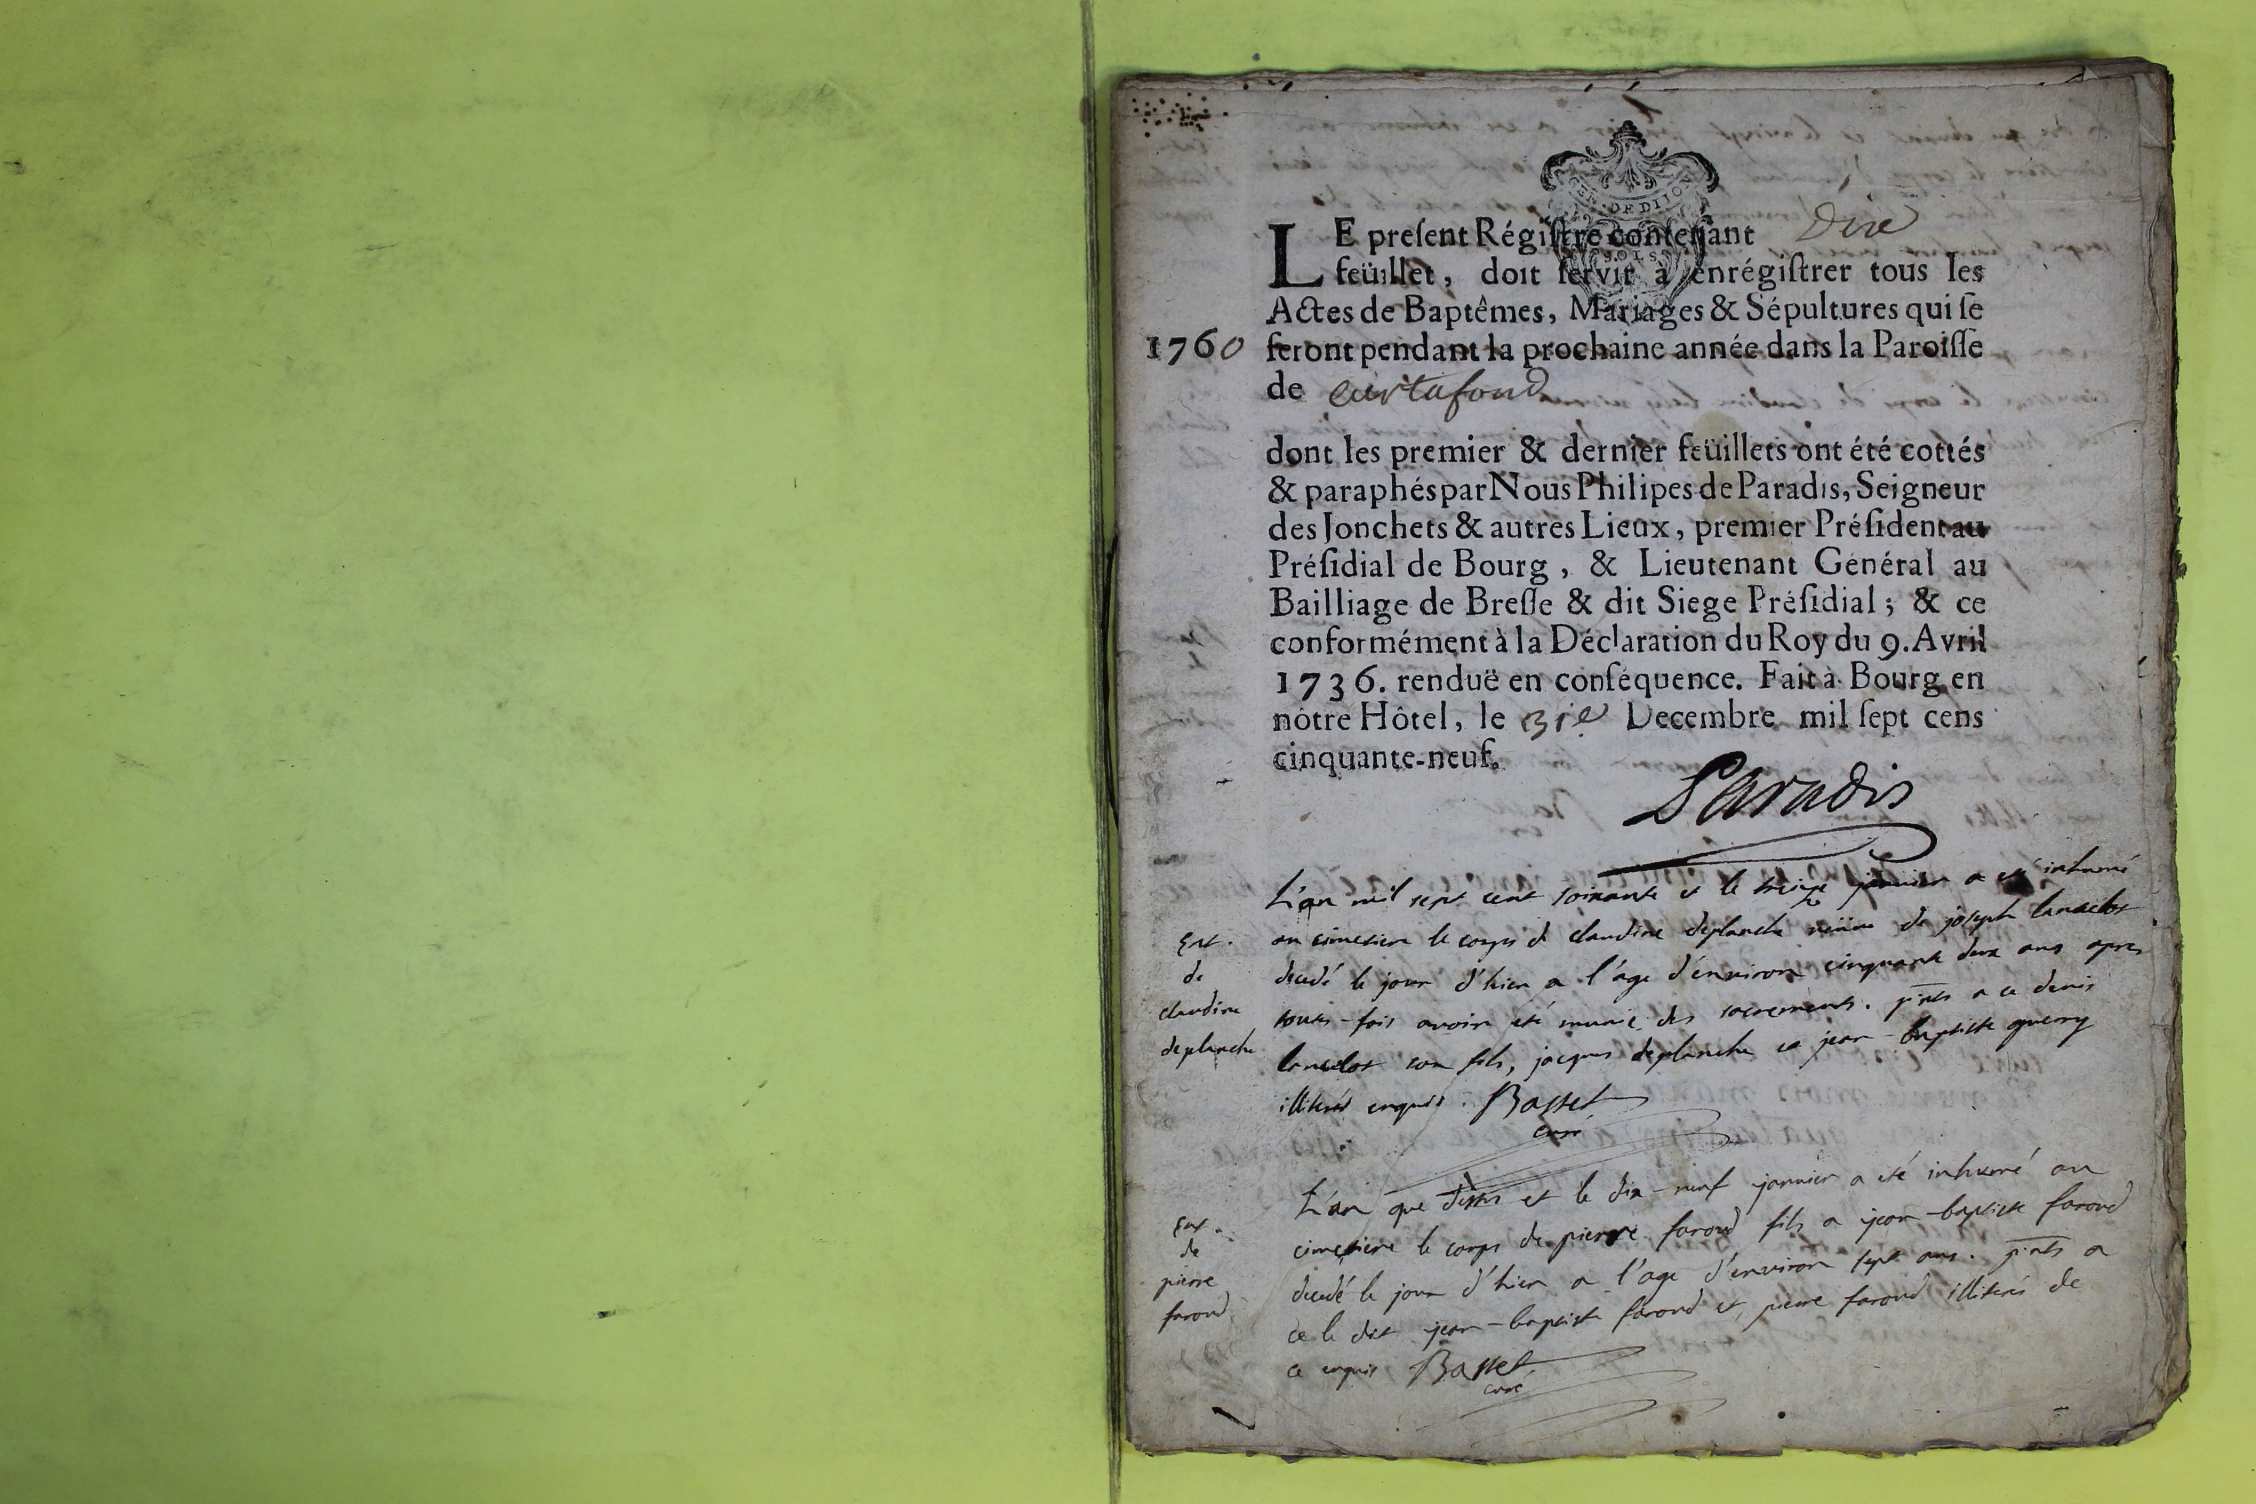 GEN. DE DIJON
SOLS
LE preſent Régiſtre contenant Dix
feüillet, doit ſervir à enrégiſtrer tous les
Actes de Baptêmes, Mariages & Sépultures qui ſe
1760 feront pendant la prochaine année dans la Paroiſſe
de Curtafond
dont les premier & dernier feüillets ont été cottés
& paraphés par Nous Philipes de Paradis, Seigneur
des Jonchets & autres Lieux, premier Préſident au
Préſidial de Bourg, & Lieutenant Général au
Bailliage de Breſſe & dit Siege Préſidial; & ce
conformément à la Déclaration du Roy du 9. Avril
1736. renduë en conſéquence. Fait à Bourg en
nôtre Hôtel, le 31e Decembre mil ſept cens
cinquante-neuf.
Paradis
L'an mil sept cent soixante et le treize janvier a été inhumé
au cimetiere le corps de claudine deplanche veüue de joseph lancelot
decedé le jour d'hier a l'age d'environ cinquante deux ans apres
toutes-fois avoir été munie des sacrements. pnts a ce denis
lancelot son fils, jacques deplanche et jean-baptiste guerry
illiterés enquis. Basset
curé
Ent.
de
claudine
deplanche
L'an que dessus et le dix-neuf janvier a été inhumé au
cimetiere le corps de pierre farond fils a jean-baptiste farond
decedé le jour d'hier a l'age d'environ sept ans. pnts a
ce le dit jean-baptiste farond et pierre farond illiterés de
ce enquis Basset
curé
Ent.
de
pierre
farond